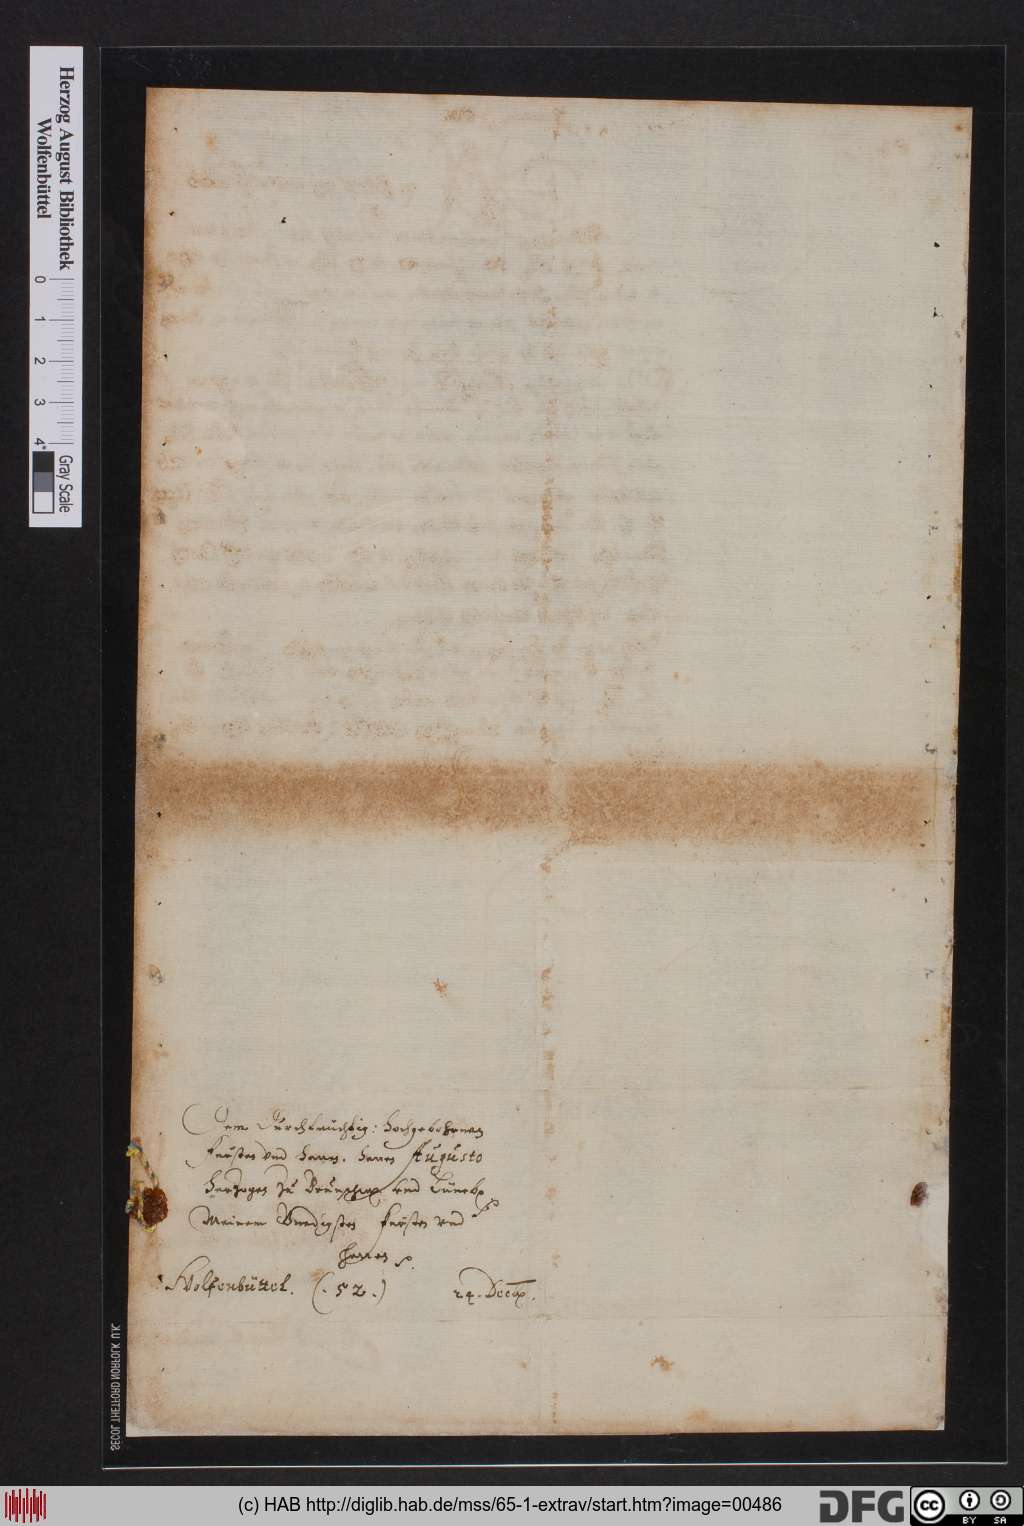 Herzog August Bibliothek
Wolfenbüttel
0 1 2 3 4"
Gray Scale
Dem Durchleuchtig: Hochgebohrnen
Fürsten vnd Herrn. Herrn Augusto
Hertzogen zu Braunschw. vnd Lüneb.
Meinem Gnedigsten Fürsten vnd
Herren
Wolfenbüttel. (. 52 .) 24. Decb.
SECOL THETFORD NORFOLK U.K.
(c) HAB http://diglib.hab.de/mss/65-1-extrav/start.htm?image=00486
DFG
cc
BY SA